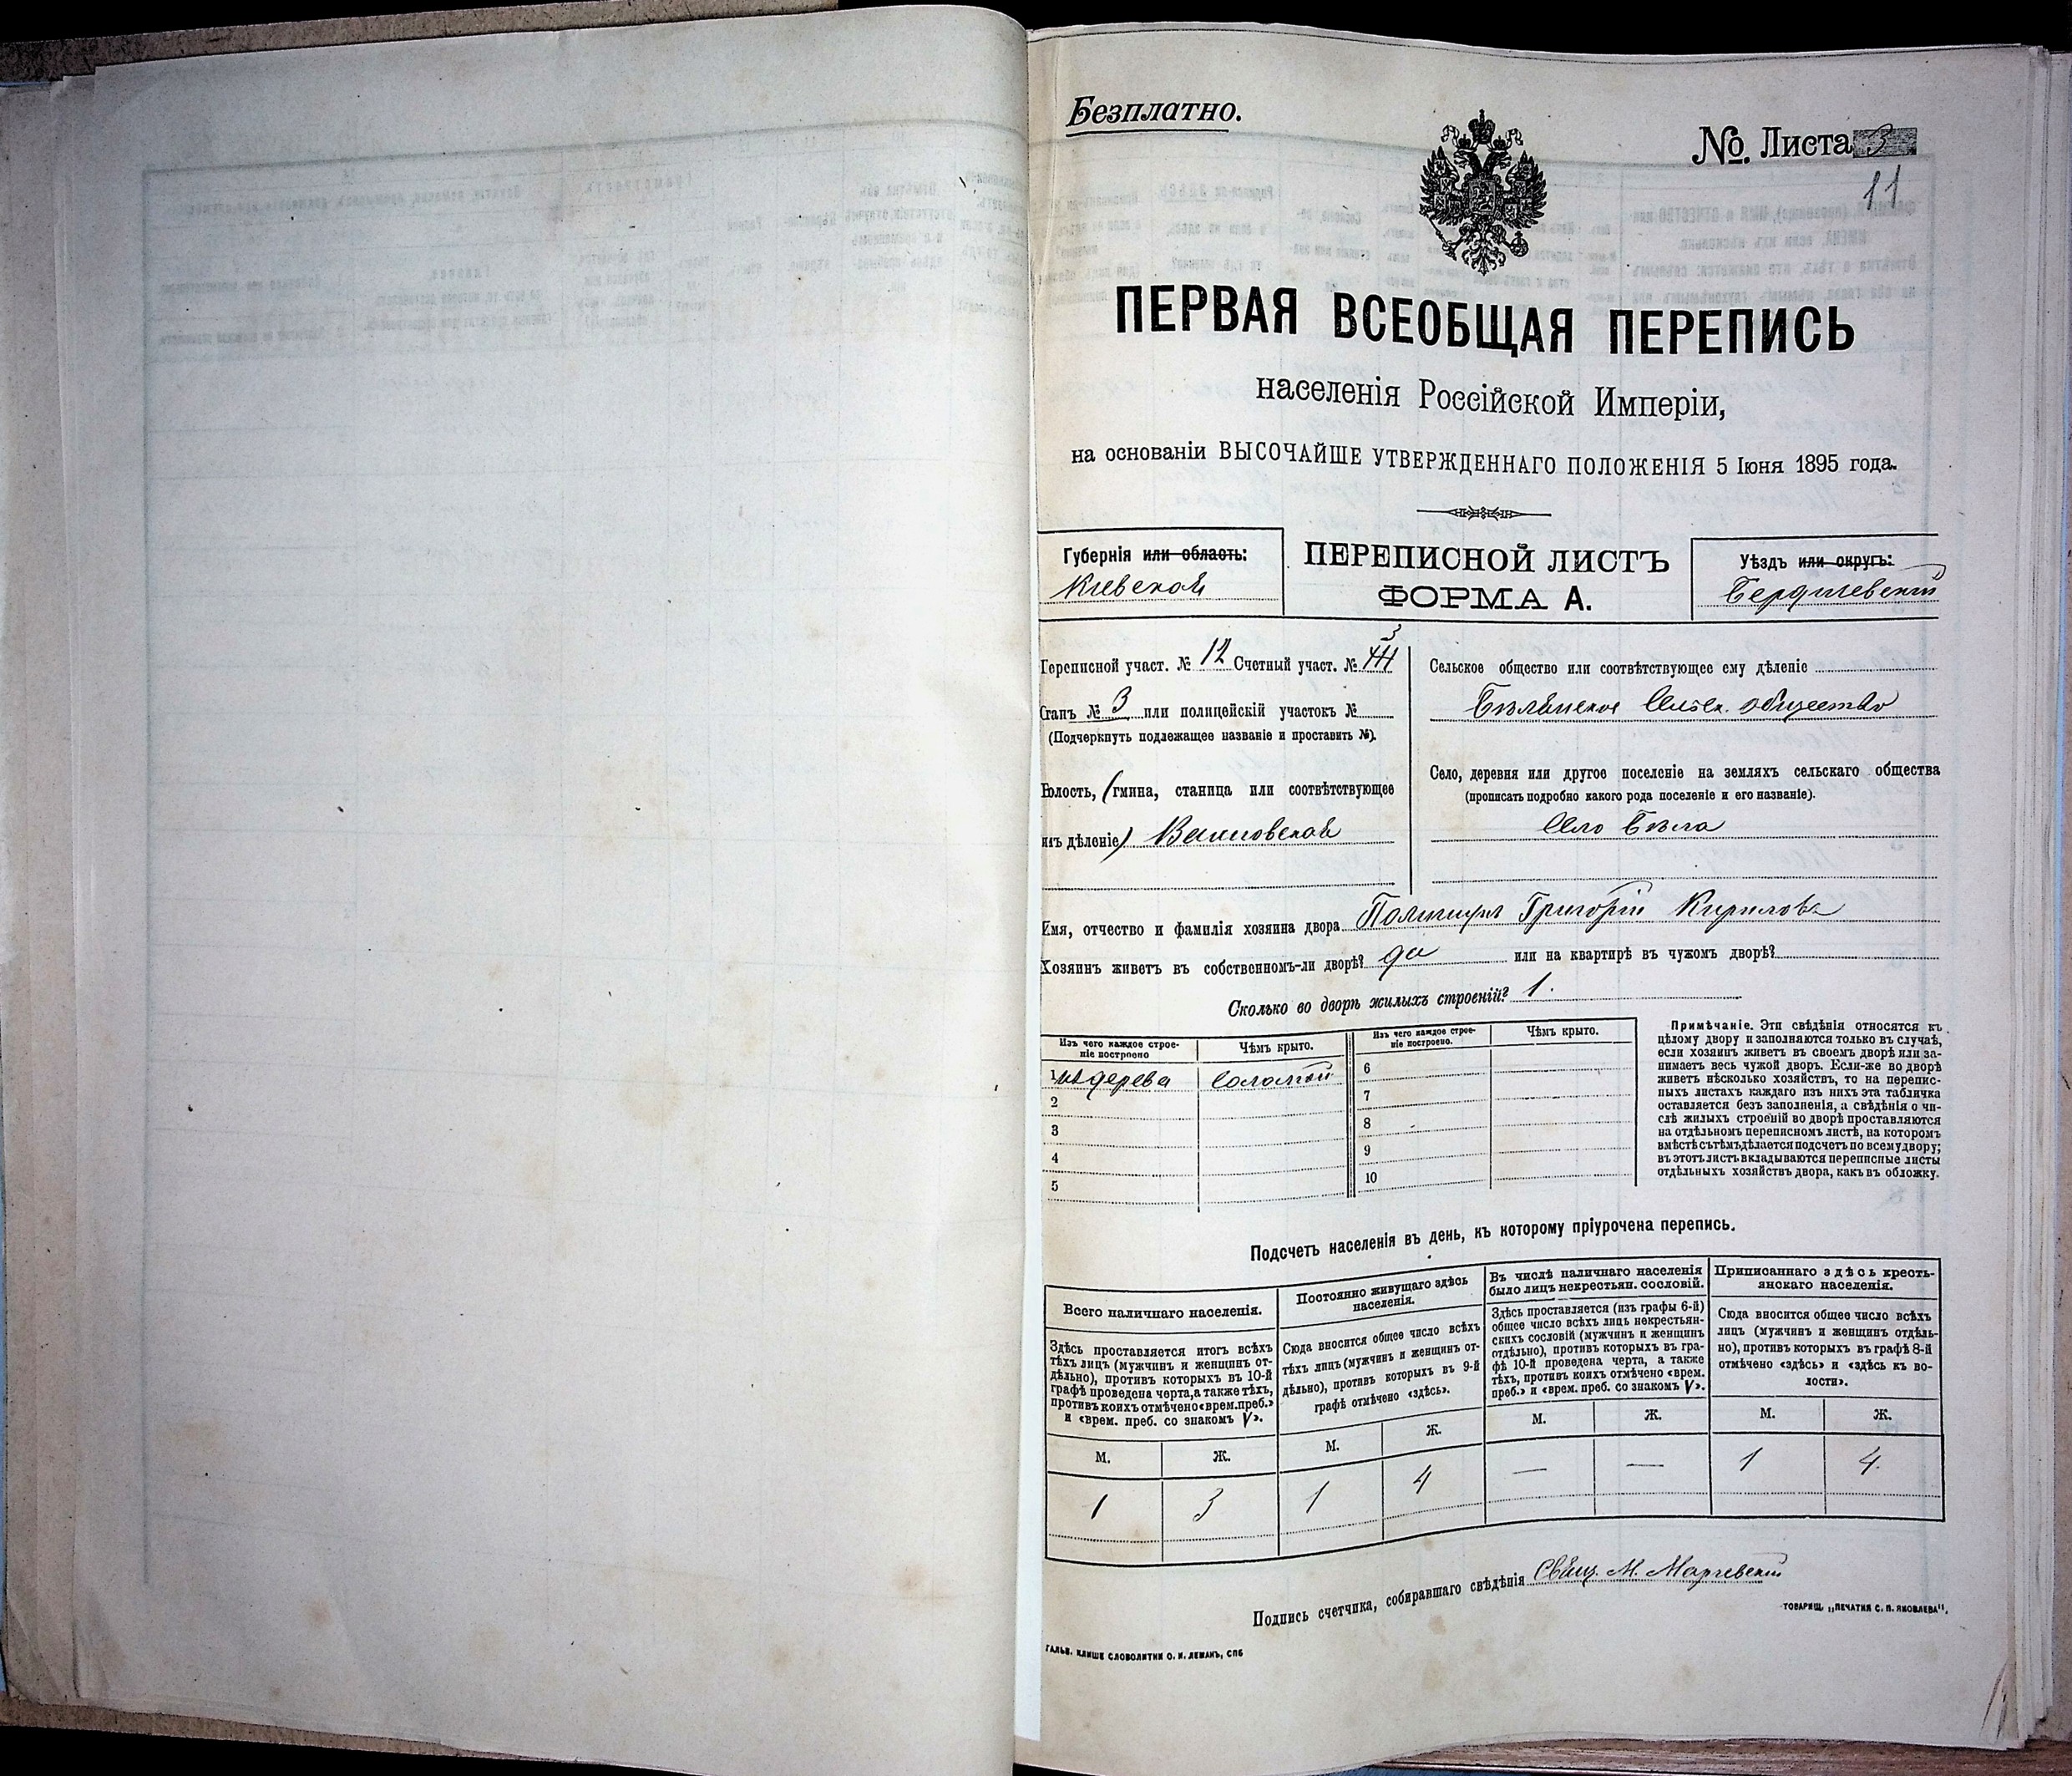 Безплатно.
№. Листа 3
11
ПЕРВАЯ ВСЕОБЩАЯ ПЕРЕПИСЬ
населенія Россійской Имперіи,
на основаніи ВЫСОЧАЙШЕ УТВЕРЖДЕННАГО ПОЛОЖЕНІЯ 5 Іюня 1895 года.
Губернія или область:
Кіевской
ПЕРЕПИСНОЙ ЛИСТЪ
ФОРМА А.
Уѣздъ или округъ:
Бердичевскій
Переписной участ. № 12 Счетный участ. № 3
Станъ № 3 или полицейскій участокъ №
(Подчеркнуть подлежащее названіе и проставить №).
Волость, (гмина, станица или соотвѣтствующее
имъ дѣленіе)
Сельское общество или соотвѣтствующее ему дѣленіе
Бѣлянское Сельск. общество
Село, деревня или другое поселеніе на земляхъ сельскаго общества
(прописать подробно какого рода поселеніе и его названіе).
Село Бѣла
Имя, отчество и фамилія хозяина двора Григорій Кирилловъ
Хозяинъ живетъ въ собственномъ-ли дворѣ? да или на квартирѣ въ чужомъ дворѣ?
Сколько во дворѣ жилыхъ строеній? 1.
Изъ чего каждое строе-
ніе построено
Чѣмъ крыто.
Изъ чего каждое строе-
ніе построено.
Чѣмъ крыто.
1 изъ дерева соломой
2
3
4
5
6
7
8
9
10
Примѣчаніе. Эти свѣдѣнія относятся къ
цѣлому двору и заполняются только въ случаѣ,
если хозяинъ живетъ въ своемъ дворѣ или за-
нимаетъ весь чужой дворъ. Если-же во дворѣ
живетъ нѣсколько хозяйствъ, то на перепис-
ныхъ листахъ каждаго изъ нихъ эта табличка
оставляется безъ заполненія, а свѣдѣнія о чи-
слѣ жилыхъ строеній во дворѣ проставляются
на отдѣльномъ переписномъ листѣ, на которомъ
вмѣстѣ съ тѣмъ дѣлается подсчетъ по всему двору;
въ этотъ листъ вкладываются переписные листы
отдѣльныхъ хозяйствъ двора, какъ въ обложку.
Подсчетъ населенія въ день, къ которому пріурочена перепись.
Всего наличнаго населенія.
Здѣсь проставляется итогъ всѣхъ
тѣхъ лицъ (мужчинъ и женщинъ от-
дѣльно), противъ которыхъ въ 10-й
графѣ проведена черта, а также тѣхъ,
противъ коихъ отмѣчено «врем. преб.»
и «врем. преб. со знакомъ V».
М. Ж.
1 3
Постоянно живущаго здѣсь
населенія.
Сюда вносится общее число всѣхъ
тѣхъ лицъ (мужчинъ и женщинъ от-
дѣльно), противъ которыхъ въ 9-й
графѣ отмѣчено «здѣсь».
М. Ж.
1 4
Въ числѣ наличнаго населенія
было лицъ некрестьян. сословій.
Здѣсь проставляется (изъ графы 6-й)
общее число всѣхъ лицъ некрестьян-
скихъ сословій (мужчинъ и женщинъ
отдѣльно), противъ которыхъ въ гра-
фѣ 10-й проведена черта, а также
тѣхъ, противъ коихъ отмѣчено «врем.
преб.» и «врем. преб. со знакомъ V».
М. Ж.
— —
Приписаннаго здѣсь кресть-
янскаго населенія.
Сюда вносится общее число всѣхъ
лицъ (мужчинъ и женщинъ отдѣль-
но), противъ которыхъ въ графѣ 8-й
отмѣчено «здѣсь» и «здѣсь къ во-
лости».
М. Ж.
1 4.
Подпись счетчика, собиравшаго свѣдѣнія Свящ. М.
ТОВАРИЩ. „ПЕЧАТНЯ С. П. ЯКОВЛЕВА".
ГАЛЬВ. КЛИШЕ СЛОВОЛИТНИ О. И. ЛЕМАНЪ, СПБ